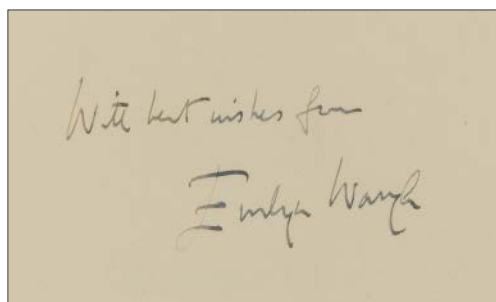 With best wishes from
Evelyn Waugh